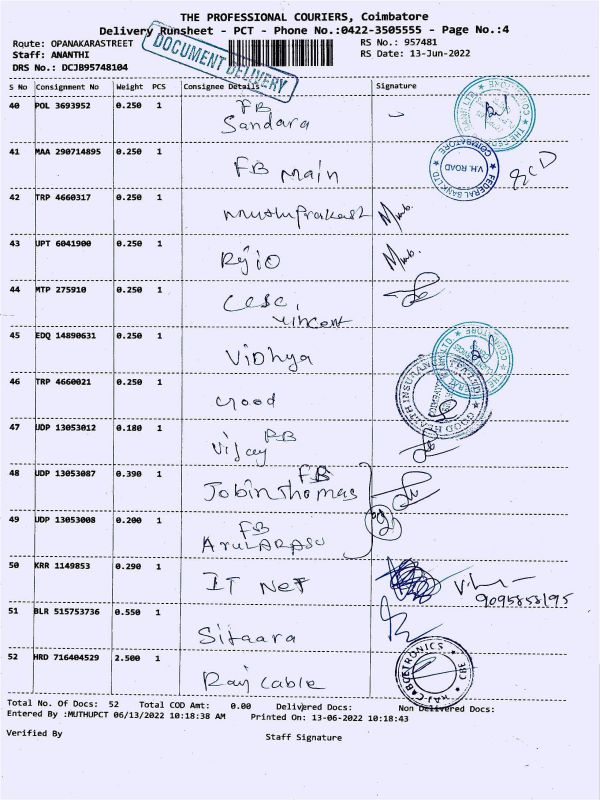 THE PROFESSIONAL COURIERS, Coimbatore
Delivery Runsheet - PCT - Phone No.:0422-3505555 - Page No.:4
Route: OPANAKARASTREET
RS No.: 957481
Staff: ANANTHI
RS Date: 13-Jun-2022
DRS No.: DCJB95748104
DOCUMENT DELIVERY
S No Consignment No Weight PCS Consignee Details Signature
40 POL 3693952 0.250 1 FB
Sandara
41 MAA 290714895 0.250 1 FB Main
FEDERAL BANK LTD
V.H. ROAD
COIMBATORE
42 TRP 4660317 0.250 1 Muthuprakash
43 UPT 6041900 0.250 1 Rejio
44 MTP 275910 0.250 1 cesc,
vincent
45 EDQ 14890631 0.250 1 Vidhya
46 TRP 4660021 0.250 1 Good
GOOD HEALTH INSURAN
47 UDP 13053012 0.180 1 Vijay FB
48 UDP 13053087 0.390 1 FB
Jobinthomas
49 UDP 13053008 0.200 1 FB
ArulARASU
50 KRR 1149853 0.290 1 IT Net
9095858195
51 BLR 515753736 0.550 1 Sitaara
52 HRD 716404529 2.500 1 Raj cable
Total No. Of Docs: 52 Total COD Amt: 0.00 Delivered Docs: Non Delivered Docs:
Entered By :MUTHUPCT 06/13/2022 10:18:38 AM Printed On: 13-06-2022 10:18:43
Verified By
Staff Signature